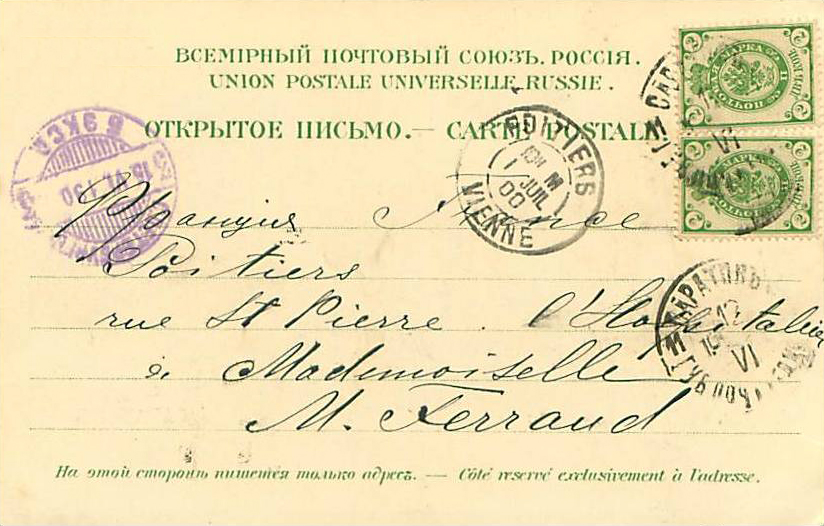 ВСЕМІРНЫЙ ПОЧТОВЫЙ СОЮЗЪ. РОССІЯ.
UNION POSTALE UNIVERSELLE. RUSSIE.
ОТКРЫТОЕ ПИСЬМО. — CARTE POSTALE
POITIERS
1 JUIL 00
VIENNE
Франція France
Poitiers
rue St Pierre. l'Hospitalier
à Mademoiselle
M. Ferraud
12
VI
На этой сторонѣ пишется только адресъ. — Côté réservé exclusivement à l'adresse.